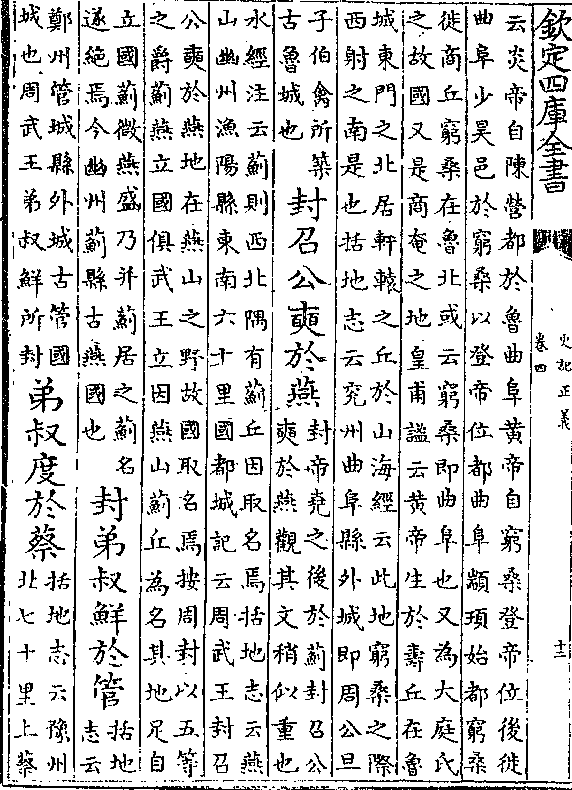 欽定四庫全書
史記正義
卷四
十三
云炎帝自陳營都於魯曲阜黄帝自窮桑登帝位後徙
曲阜少昊邑於窮桑以登帝位都曲阜顓頊始都窮桑
徙商丘窮桑在魯北或云窮桑即曲阜也又為大庭氏
之故國又是商奄之地皇甫謐云黄帝生於壽丘在魯
城東門之北居軒轅之丘於山海經云此地窮桑之際
西射之南是也括地志云兖州曲阜縣外城即周公旦
子伯禽所築
古魯城也
封召公奭於燕
封帝堯之後於薊封召公
奭於燕觀其文稍似重也
水經注云薊則西北隅有薊丘因取名焉括地志云燕
山幽州漁陽縣東南六十里國都城記云周武王封召
公奭於燕地在燕山之野故國取名焉按周封以五等
之爵薊燕立國俱武王立因燕山薊丘為名其地足自
立國薊微燕盛乃并薊居之薊名
遂絶焉今幽州薊縣古燕國也
封弟叔鮮於管
括地
志云
鄭州管城縣外城古管國
城也周武王弟叔鮮所封
弟叔度於蔡
括地志云豫州
北七十里上蔡